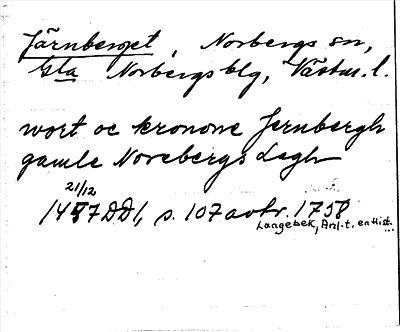 Järnberget, Norbergs sn,
Gla Norbergs blg, Västm. l.
wort oc kronone Jernbergh
gamle Norebergs Legh
21/12
1487 DD1, s. 107 avtr. 1758
Langebek, Anl. t. en Hist...